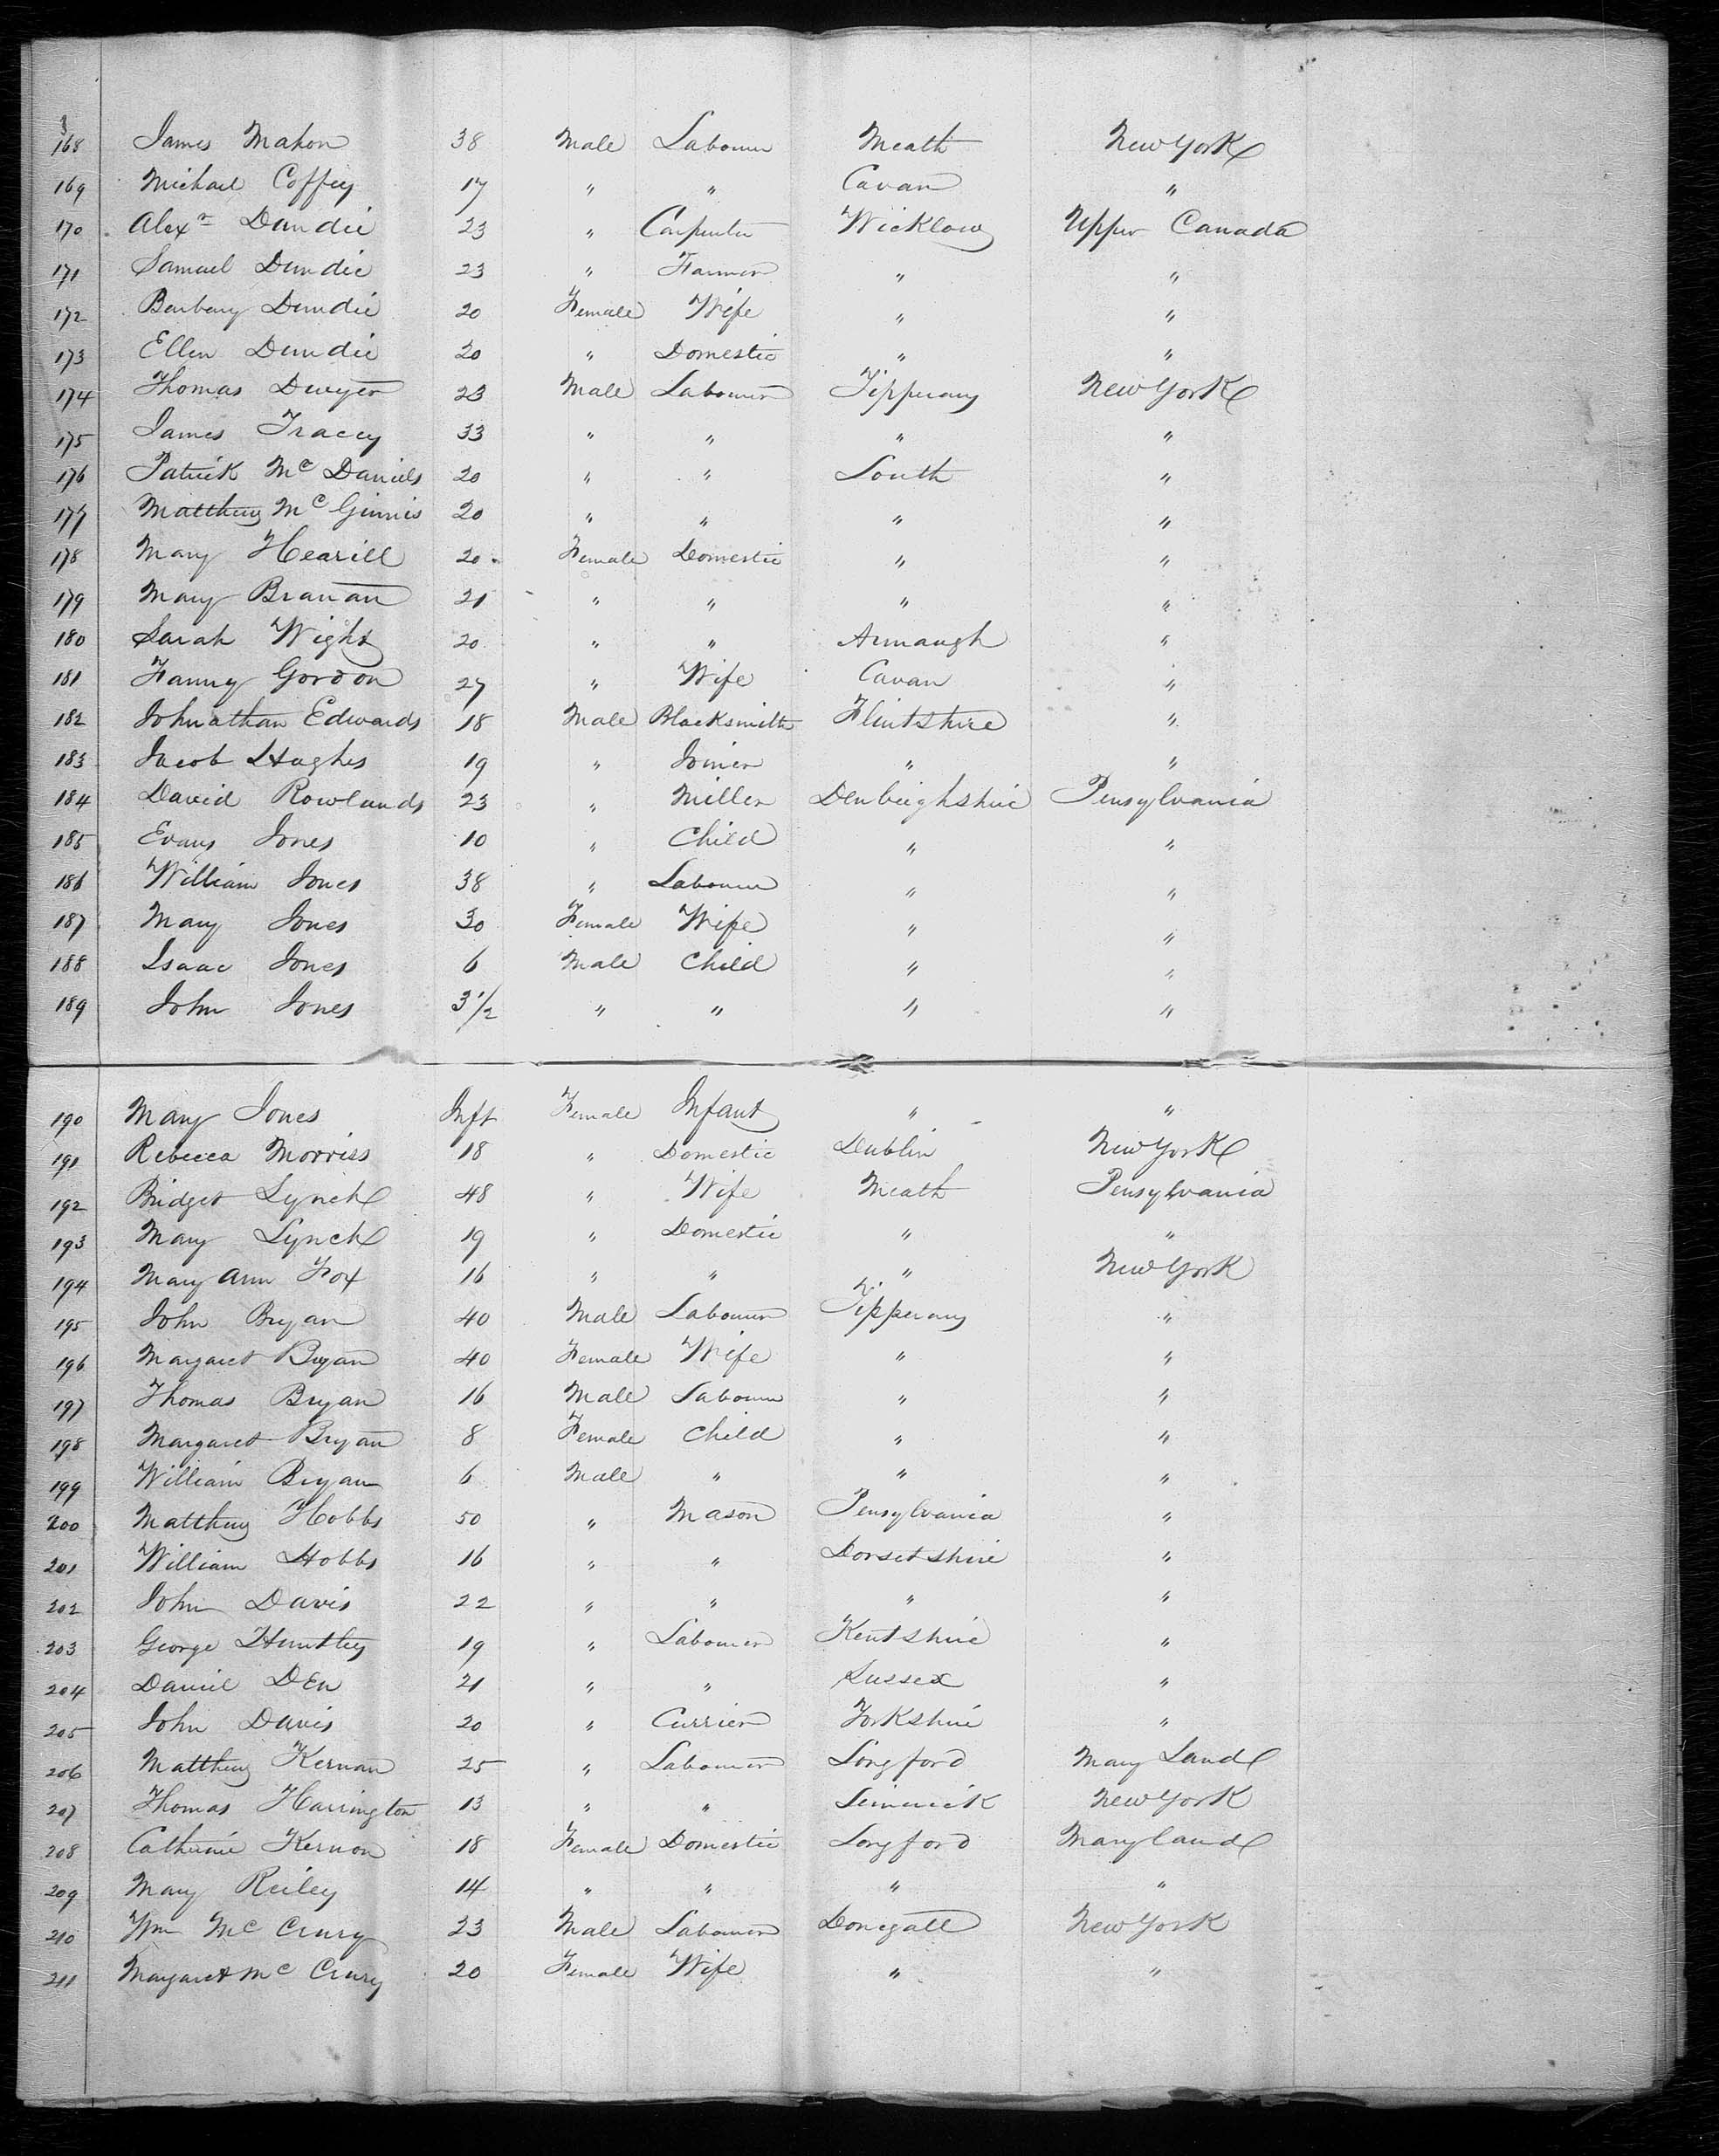 168 James Mahon 38 Male Labourer Meath New York
169 Michael Coffey 17 " " Cavan "
170 Alexr Dundie 23 " Carpenter Wicklow Upper Canada
171 Samuel Dundie 23 " Farmer " "
172 Barbary Dundie 20 Female Wife " "
173 Ellen Dundie 20 " Domestic " "
174 Thomas Dwyer 23 Male Labourer Tipperary New York
175 James Tracey 33 " " " "
176 Patrick Mc Daniels 20 " " Louth "
177 Matthew Mc Ginnis 20 " " " "
178 Mary Hearill 20 Female Domestic " "
179 Mary Branan 21 " " " "
180 Sarah Wight 20 " " Armaugh "
181 Fanny Gordon 27 " Wife Cavan "
182 Johnathan Edwards 18 Male Blacksmith Flintshire "
183 Jacob Hughes 19 " Joiner " "
184 David Rowlands 23 " Miller Denbeighshire Pensylvania
185 Evans Jones 10 " Child " "
186 William Jones 38 " Labourer " "
187 Mary Jones 30 Female Wife " "
188 Isaac Jones 6 Male Child " "
189 John Jones 3 1/2 " " " "
190 Mary Jones Inft Female Infant " "
191 Rebecca Morriss 18 " Domestic Dublin New York
192 Bridget Lynch 48 " Wife Meath Pensylvania
193 Mary Lynch 19 " Domestic " "
194 Mary Ann Fox 16 " " " New York
195 John Bryan 40 Male Labourer Tipperary "
196 Margaret Bryan 40 Female Wife " "
197 Thomas Bryan 16 Male Labourer " "
198 Margaret Bryan 8 Female Child " "
199 William Bryan 6 Male " " "
200 Matthew Hobbs 50 " Mason Pensylvania "
201 William Hobbs 16 " " Dorsetshire "
202 John Davis 22 " " " "
203 George Huntley 19 " Labourer Kentshire "
204 Daniel Den 21 " " Sussex "
205 John Davis 20 " Currier Yorkshire "
206 Matthew Kernan 25 " Labourer Longford Mary Land
207 Thomas Harrington 13 " " Limerick New York
208 Catherine Kernon 18 Female Domestic Longford Maryland
209 Mary Reiley 14 " " " "
210 Wm Mc Crury 23 Male Labourer Donegall New York
211 Margaret Mc Crury 20 Female Wife " "